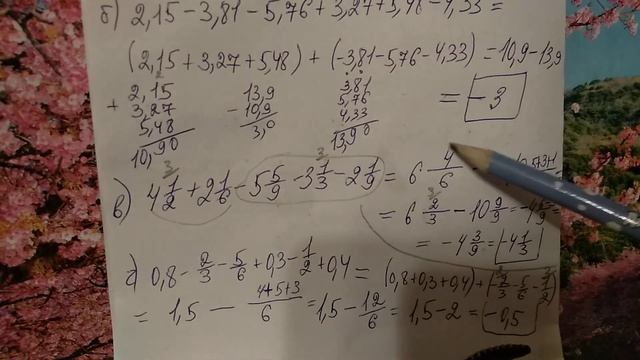 б) 2,15 - 3,81 - 5,76 + 3,27 + 5,48 - 4,33 =
(2,15 + 3,27 + 5,48) + (-3,81 - 5,76 - 4,33) = 10,9 - 13,9
= -3
+ 2,15
3,27
5,48
10,90
13,9
- 10,9
3,0
3,81
5,76
4,33
13,90
в) 4 1/2 + 2 1/6 - 5 5/9 - 3 1/3 - 2 1/9 = 6 4/6
= 6 2/3 - 10 9/9 =
= -4 3/9 = -4 1/3
г) 0,8 - 2/3 - 5/6 + 0,3 - 1/2 + 0,4 = (0,8 + 0,3 + 0,4) + (-2/3 - 5/6 - 1/2)
= 1,5 - 4+5+3/6 = 1,5 - 12/6 = 1,5 - 2 = -0,5